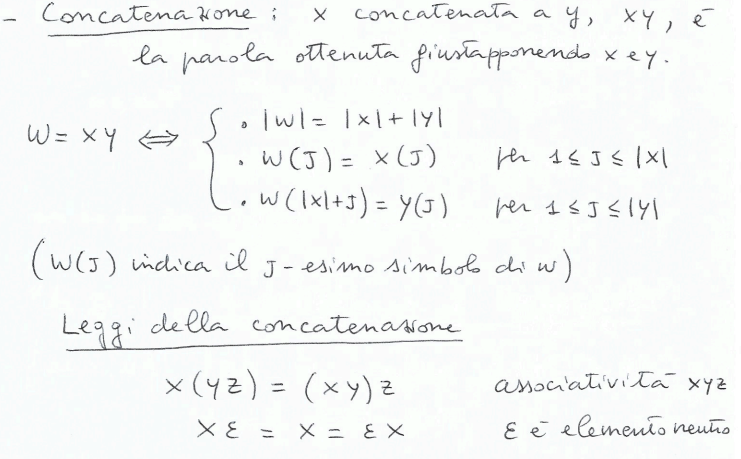 - Concatenazione : x concatenata a y, xy, è
la parola ottenuta giustapponendo x e y.
w = xy ⇔ { • |w| = |x| + |y|
• w(j) = x(j) per 1 ≤ j ≤ |x|
• w(|x|+j) = y(j) per 1 ≤ j ≤ |y|
(w(j) indica il j-esimo simbolo di w)
Leggi della concatenazione
x(yz) = (xy)z associatività xyz
xε = x = εx ε è elemento neutro